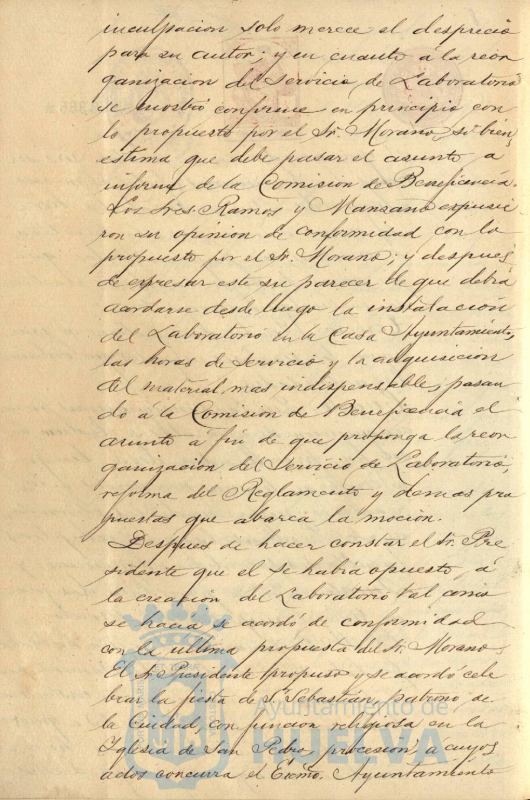 inculpacion solo merece el desprecio
para su autor; y en cuanto á la reor
ganizacion del Servicio de Laboratorio
se mostró conforme en principio con
lo propuesto por el Sr. Morano, si bien
estima que debe pasar el asunto, a
informe de la Comision de Beneficencia.
Los Sres. Ramos y Manzano expusie
ron su opinion de conformidad con lo
propuesto por el Sr. Morano; y despues
de expresar este su parecer de que debia
acordarse desde luego la instalación
del Laboratorio en la Casa Ayuntamiento,
las horas de servicio y la adquisicion
del material mas indispensable, pasan
do á la Comision de Beneficencia el
asunto á fin de que proponga la reor
ganizacion del Servicio de Laboratorio,
reforma del Reglamento y demas pro
puestas que abarca la mocion.
Despues de hacer constar el Sr. Pre
sidente que el se habia opuesto, á
la creacion del Laboratorio tal como
se hacia se acordó de conformidad
con la ultima propuesta del Sr. Morano.
El Sr. Presidente propuso y se acordó cele
brar la fiesta de S. Sebastian, patrono de
la Ciudad, con funcion religiosa en la
Iglesia de San Pedro, procesion, a cuyos
actos concurra el Excmo. Ayuntamiento
Ayuntamiento de
HUELVA